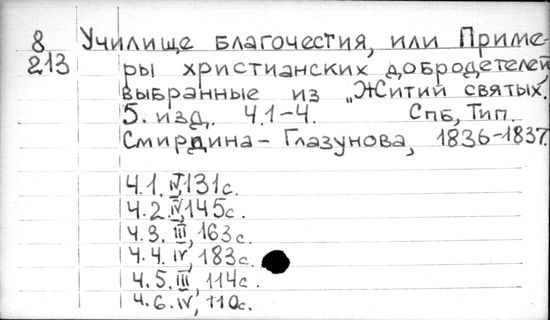 8 Училище благочестия, или Приме-
213 ры христианских добродетелей
выбранные из „Житий святых".
5. изд. Ч.1-4. Спб, Тип.
Смирдина - Глазунова, 1836-1837.
Ч.1. IV, 131с.
Ч.2. IV, 145с.
Ч.3. III, 163с.
Ч.4. IV, 183с.
Ч.5. III, 114с.
Ч.6. IV, 110с.